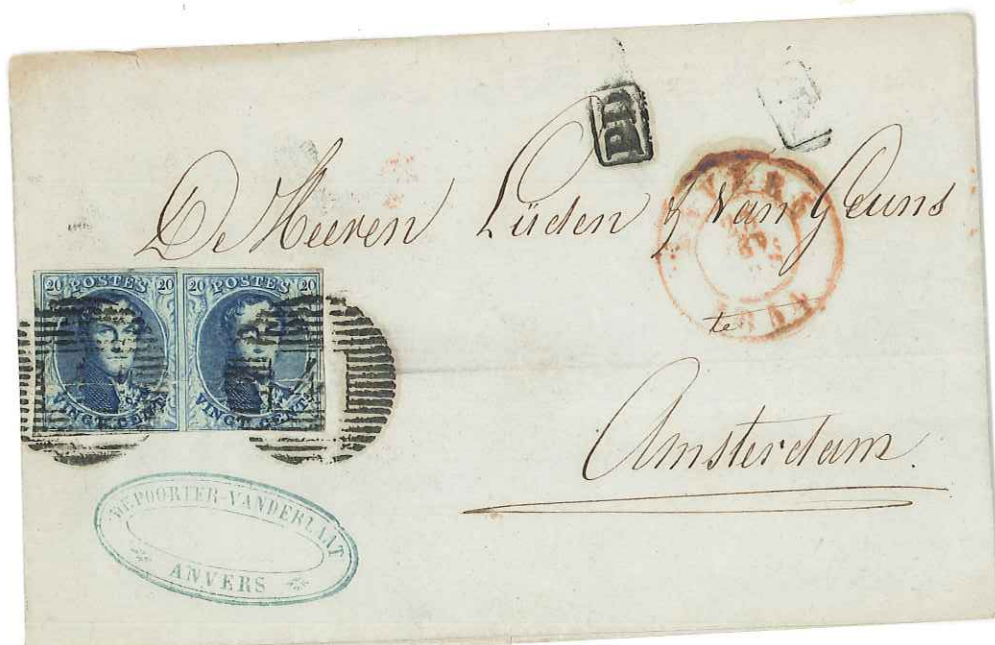 PD
De Heeren Lüden & Van Geuns
ANVERS
te
Amsterdam.
20 POSTES 20
VINGT CENTS
20 POSTES 20
VINGT CENTS
DEPOORTER-VANDERLAAT
ANVERS